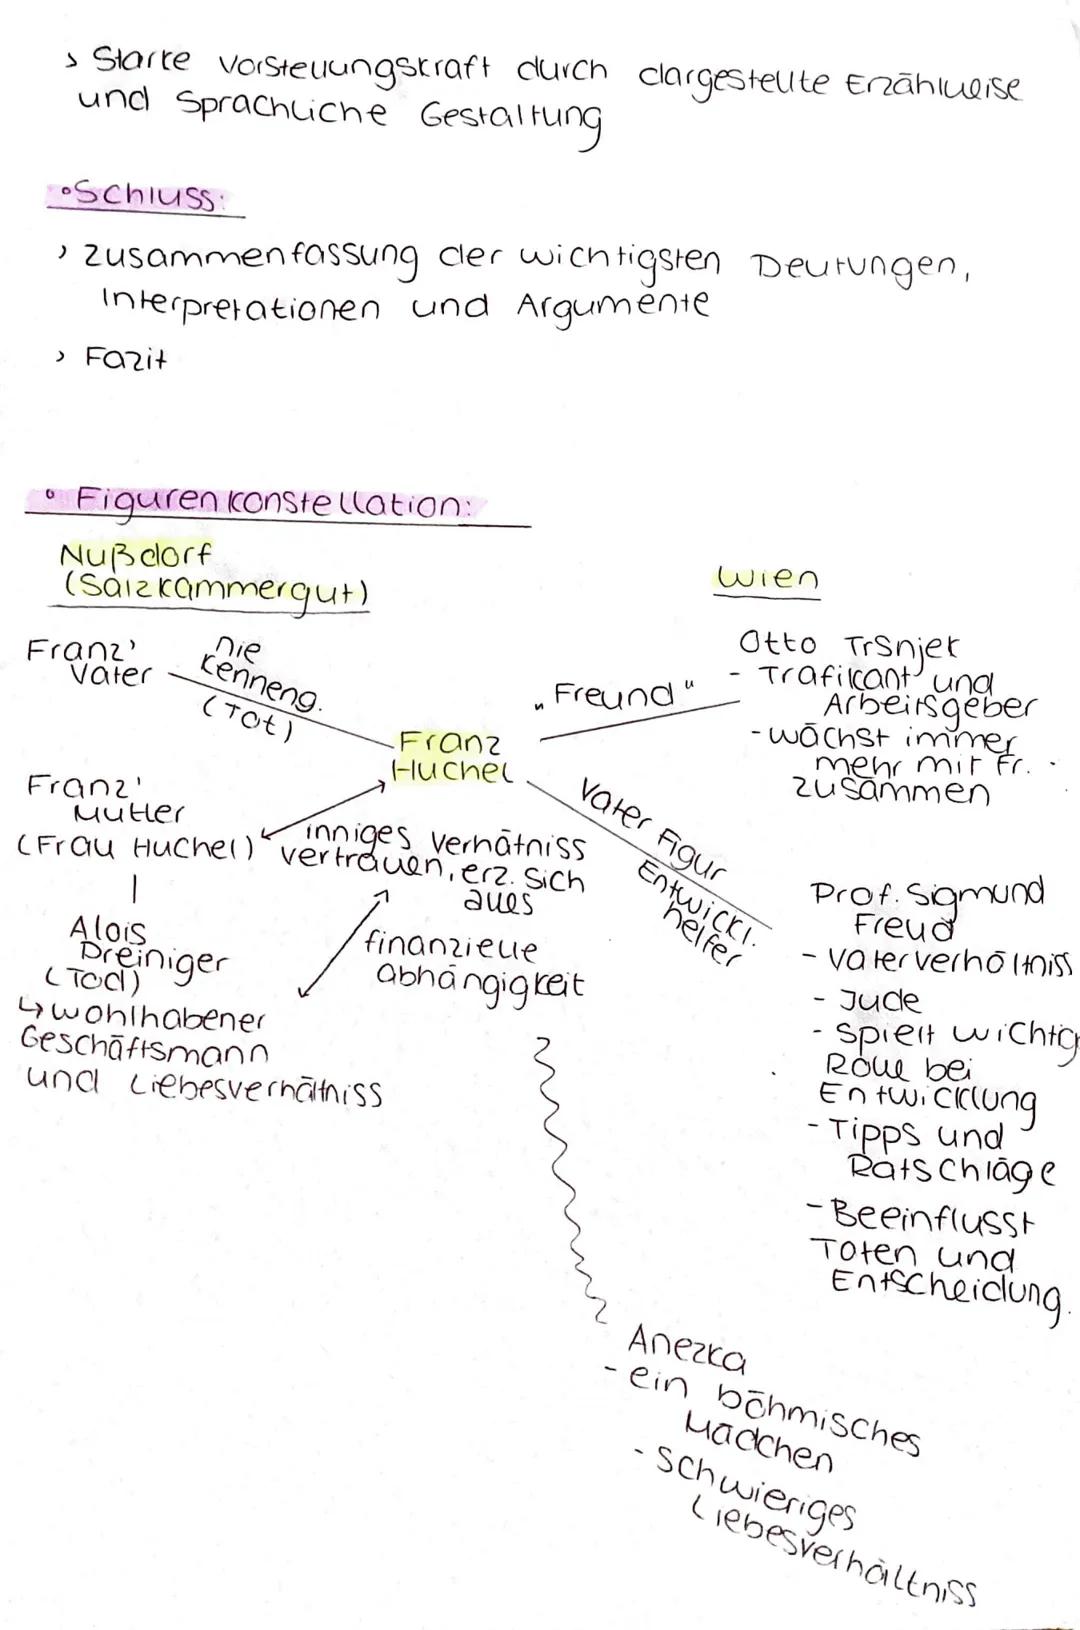 › Starke Vorstellungskraft durch dargestellte Erzählweise
und Sprachliche Gestaltung
• Schluss:
› Zusammenfassung der wichtigsten Deutungen,
Interpretationen und Argumente
› Fazit
• Figurenkonstellation:
Nußdorf
(Salzkammergut)
Wien
Franz'
Vater
nie
kenneng.
(Tot)
Franz
Huchel
„Freund"
Otto Trsnjek
- Trafikant und
Arbeitsgeber
- wächst immer
mehr mit Fr.
zusammen
Franz'
Mutter
(Frau Huchel)
inniges Verhätniss
vertrauen, erz. sich
alles
finanzielle
abhängigkeit
Alois
Preiniger
(Tod)
↳ wohlhabener
Geschäftsmann
und Liebesverhältniss
Vater Figur
Entwickl.
helfer
Prof. Sigmund
Freud
- Vaterverhältniss
- Jude
- spielt wichtg
Rolle bei
Entwicklung
- Tipps und
Ratschläge
- Beeinflusst
Toten und
Entscheidung.
Anezka
- ein böhmisches
Mädchen
- schwieriges
Liebesverhältniss